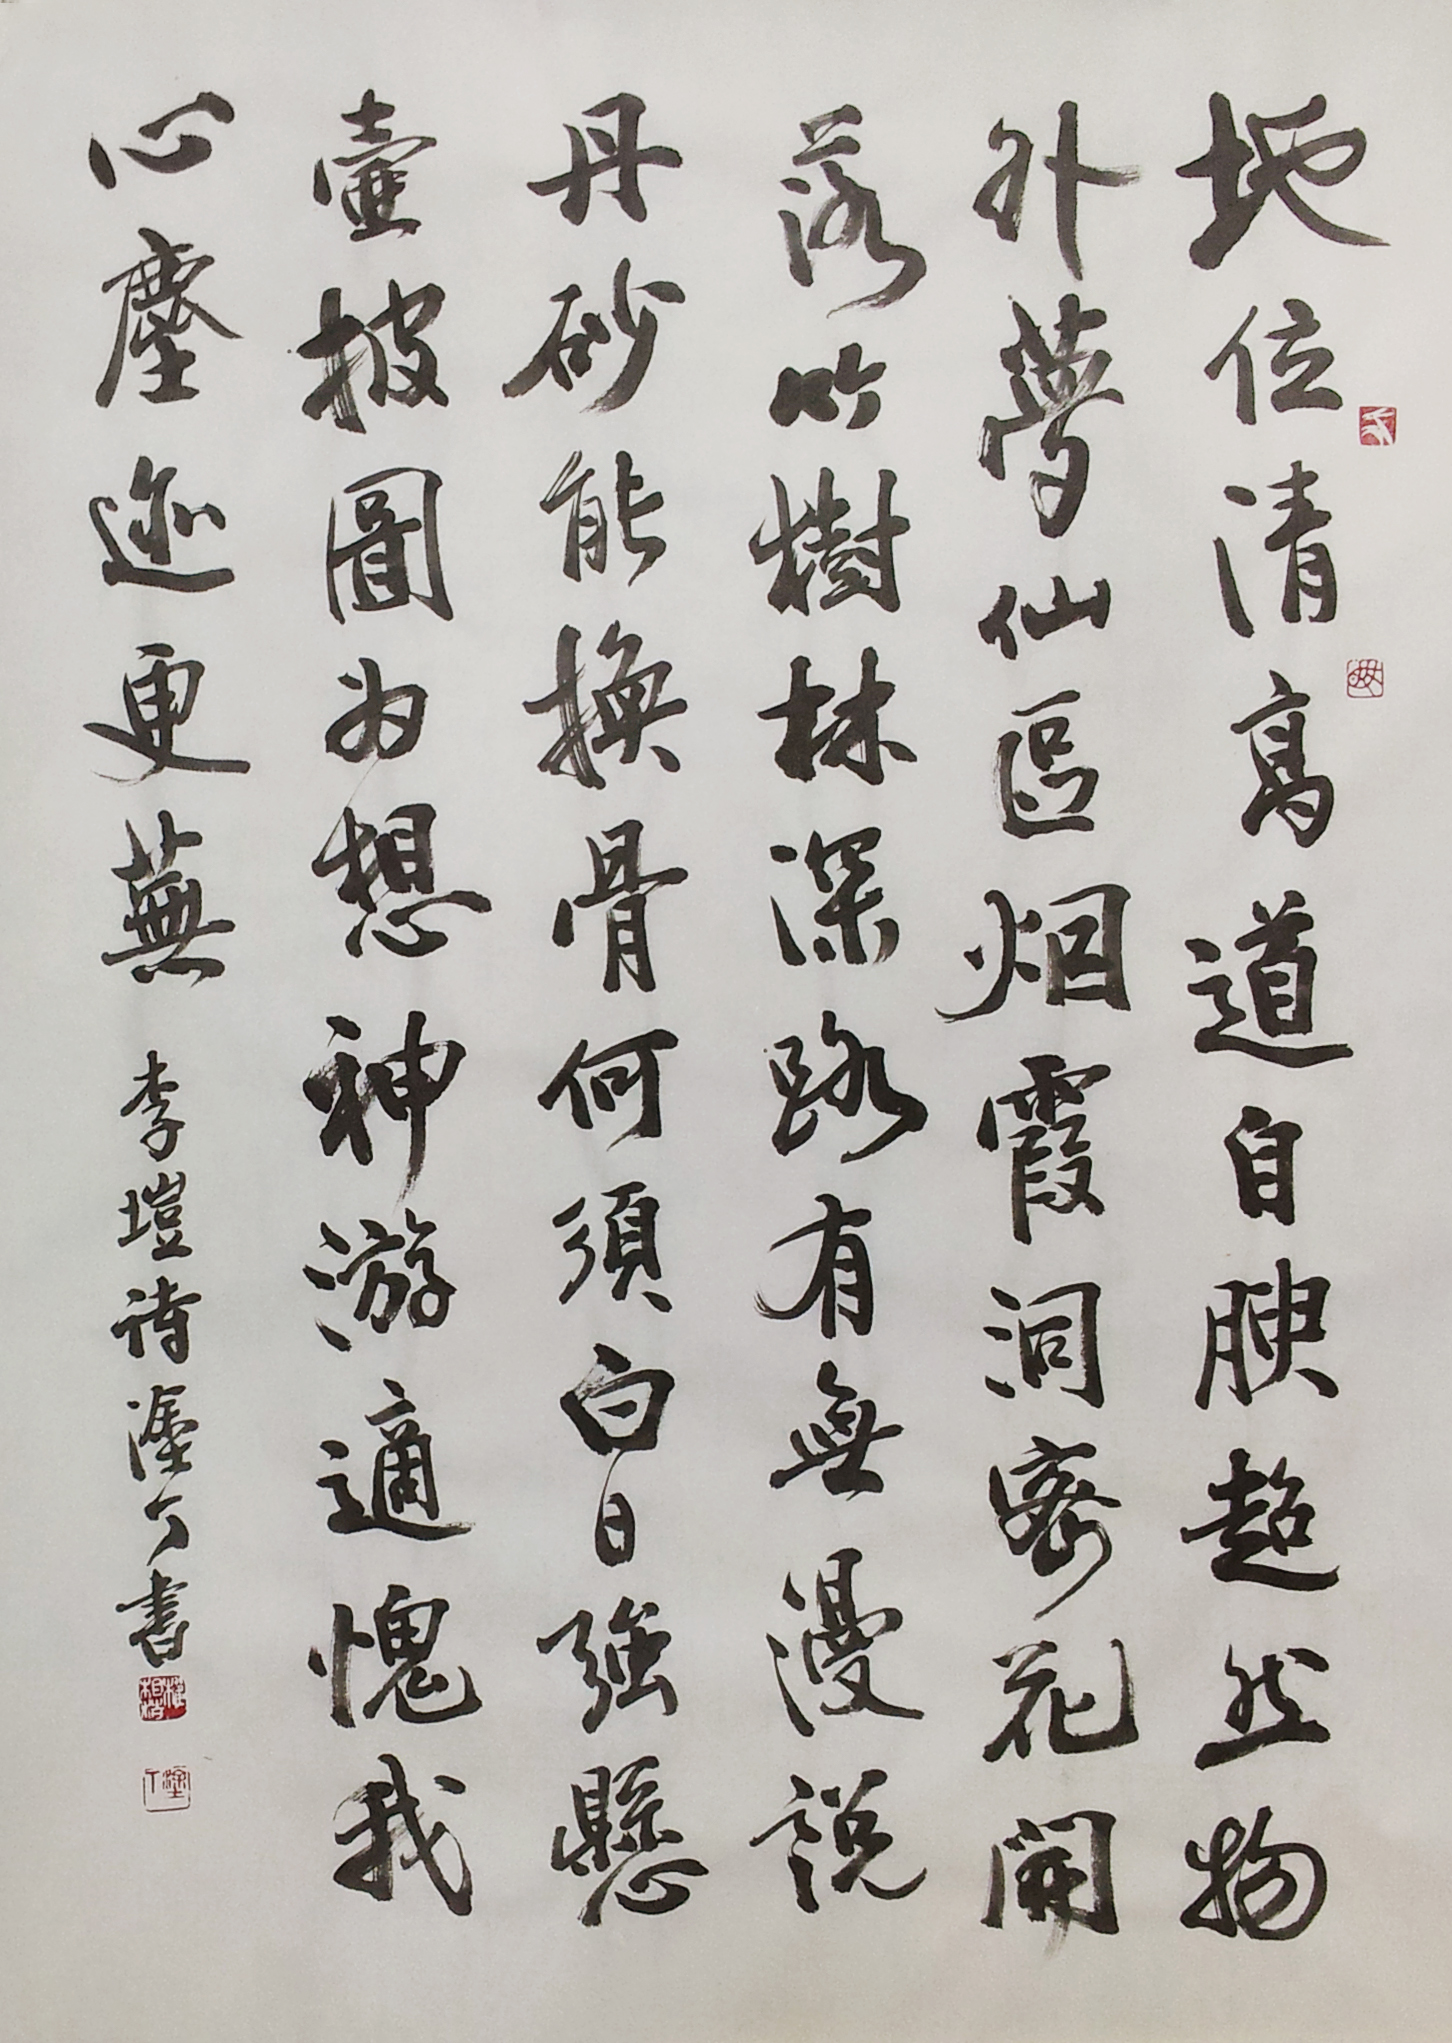 地位清高道自腴超然物
外夢仙區烟霞洞密花開
落竹樹林深路有無漫說
丹砂能換骨何須白日強懸
壺披圖為想神游適愧我
心塵迹更蕪
李塏詩㢓公書